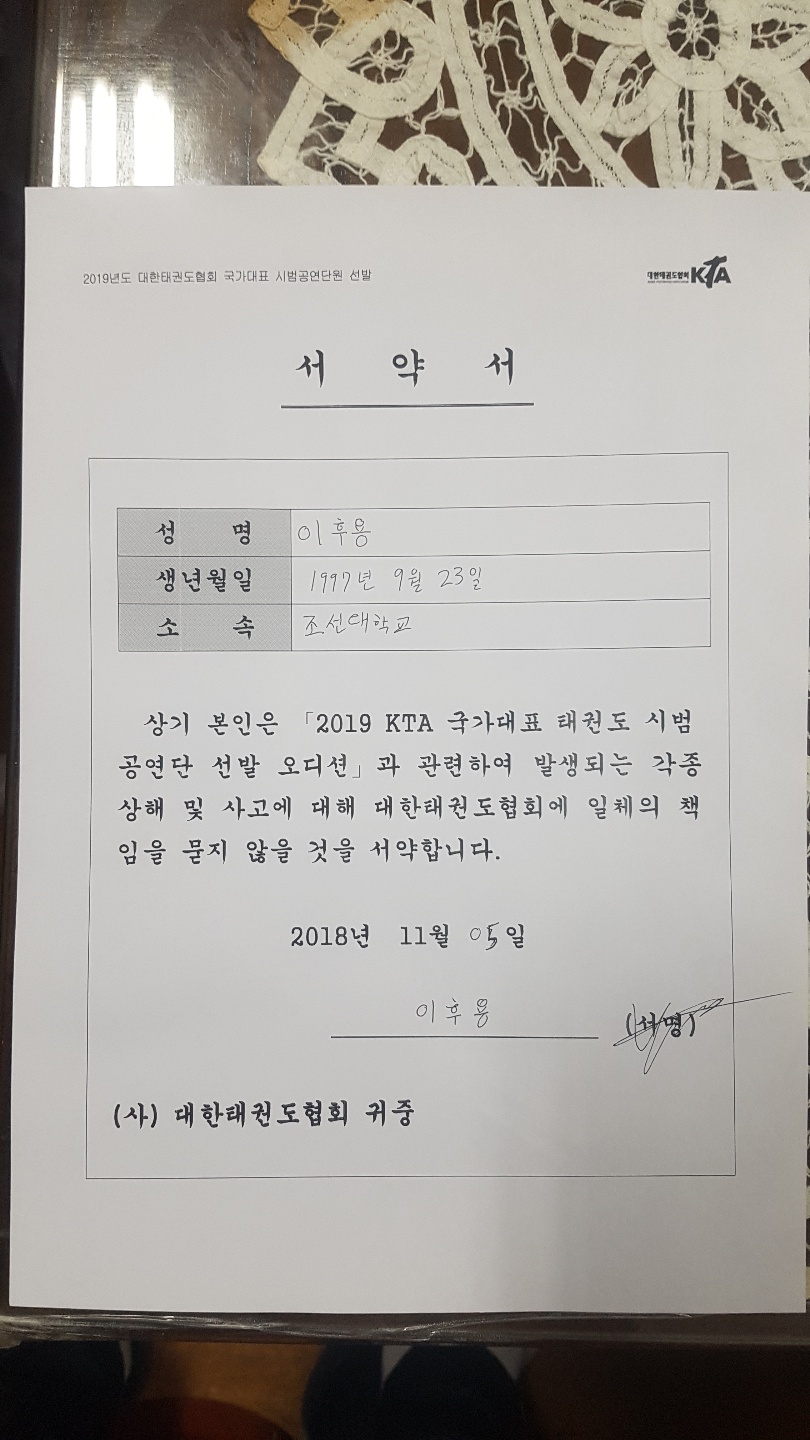 2019년도 대한태권도협회 국가대표 시범공연단원 선발
대한태권도협회 KTA
서 약 서
성 명 이후용
생년월일 1997년 9월 23일
소 속 조선대학교
상기 본인은 「2019 KTA 국가대표 태권도 시범
공연단 선발 오디션」과 관련하여 발생되는 각종
상해 및 사고에 대해 대한태권도협회에 일체의 책
임을 묻지 않을 것을 서약합니다.
2018년 11월 05일
이후용 (서명)
(사) 대한태권도협회 귀중